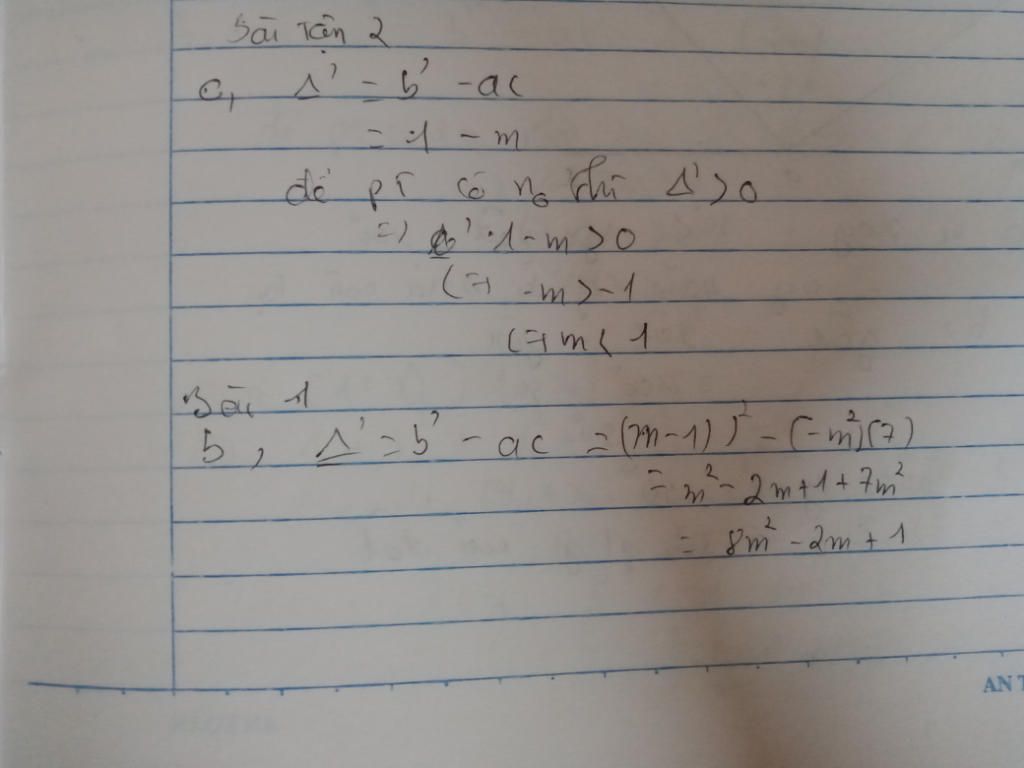 Bài Toán 2
c, Δ' = b' - ac
= 1 - m
để pt có no thì Δ' > 0
=> 1 - m > 0
(=> -m > -1
(=> m < 1
Bài 1
b, Δ' = b' - ac = (m-1))² - (-m²)(7)
= m² - 2m + 1 + 7m²
= 8m² - 2m + 1
AN T